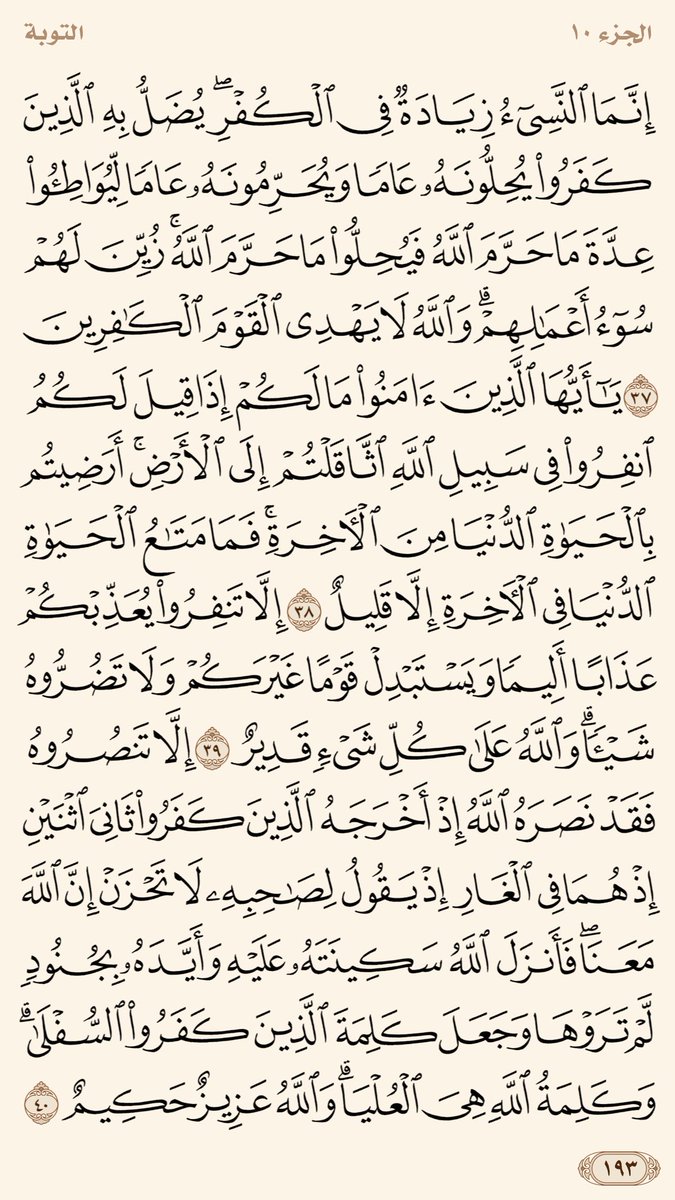 الجزء ١٠
التوبة
إِنَّمَا ٱلنَّسِيٓءُ زِيَادَةٌ فِي ٱلْكُفْرِۖ يُضَلُّ بِهِ ٱلَّذِينَ
كَفَرُواْ يُحِلُّونَهُۥ عَامًا وَيُحَرِّمُونَهُۥ عَامًا لِّيُوَاطِـُٔواْ
عِدَّةَ مَا حَرَّمَ ٱللَّهُ فَيُحِلُّواْ مَا حَرَّمَ ٱللَّهُۚ زُيِّنَ لَهُمْ
سُوٓءُ أَعْمَٰلِهِمْۗ وَٱللَّهُ لَا يَهْدِي ٱلْقَوْمَ ٱلْكَٰفِرِينَ
٣٧ يَٰٓأَيُّهَا ٱلَّذِينَ ءَامَنُواْ مَا لَكُمْ إِذَا قِيلَ لَكُمُ
ٱنفِرُواْ فِي سَبِيلِ ٱللَّهِ ٱثَّاقَلْتُمْ إِلَى ٱلْأَرْضِۚ أَرَضِيتُم
بِٱلْحَيَوٰةِ ٱلدُّنْيَا مِنَ ٱلْأٓخِرَةِۚ فَمَا مَتَٰعُ ٱلْحَيَوٰةِ
ٱلدُّنْيَا فِي ٱلْأٓخِرَةِ إِلَّا قَلِيلٌ ٣٨ إِلَّا تَنفِرُواْ يُعَذِّبْكُمْ
عَذَابًا أَلِيمًا وَيَسْتَبْدِلْ قَوْمًا غَيْرَكُمْ وَلَا تَضُرُّوهُ
شَيْـًٔاۗ وَٱللَّهُ عَلَىٰ كُلِّ شَيْءٍ قَدِيرٌ ٣٩ إِلَّا تَنصُرُوهُ
فَقَدْ نَصَرَهُ ٱللَّهُ إِذْ أَخْرَجَهُ ٱلَّذِينَ كَفَرُواْ ثَانِيَ ٱثْنَيْنِ
إِذْ هُمَا فِي ٱلْغَارِ إِذْ يَقُولُ لِصَٰحِبِهِۦ لَا تَحْزَنْ إِنَّ ٱللَّهَ
مَعَنَاۖ فَأَنزَلَ ٱللَّهُ سَكِينَتَهُۥ عَلَيْهِ وَأَيَّدَهُۥ بِجُنُودٍ
لَّمْ تَرَوْهَا وَجَعَلَ كَلِمَةَ ٱلَّذِينَ كَفَرُواْ ٱلسُّفْلَىٰۗ
وَكَلِمَةُ ٱللَّهِ هِيَ ٱلْعُلْيَاۗ وَٱللَّهُ عَزِيزٌ حَكِيمٌ ٤٠
١٩٣